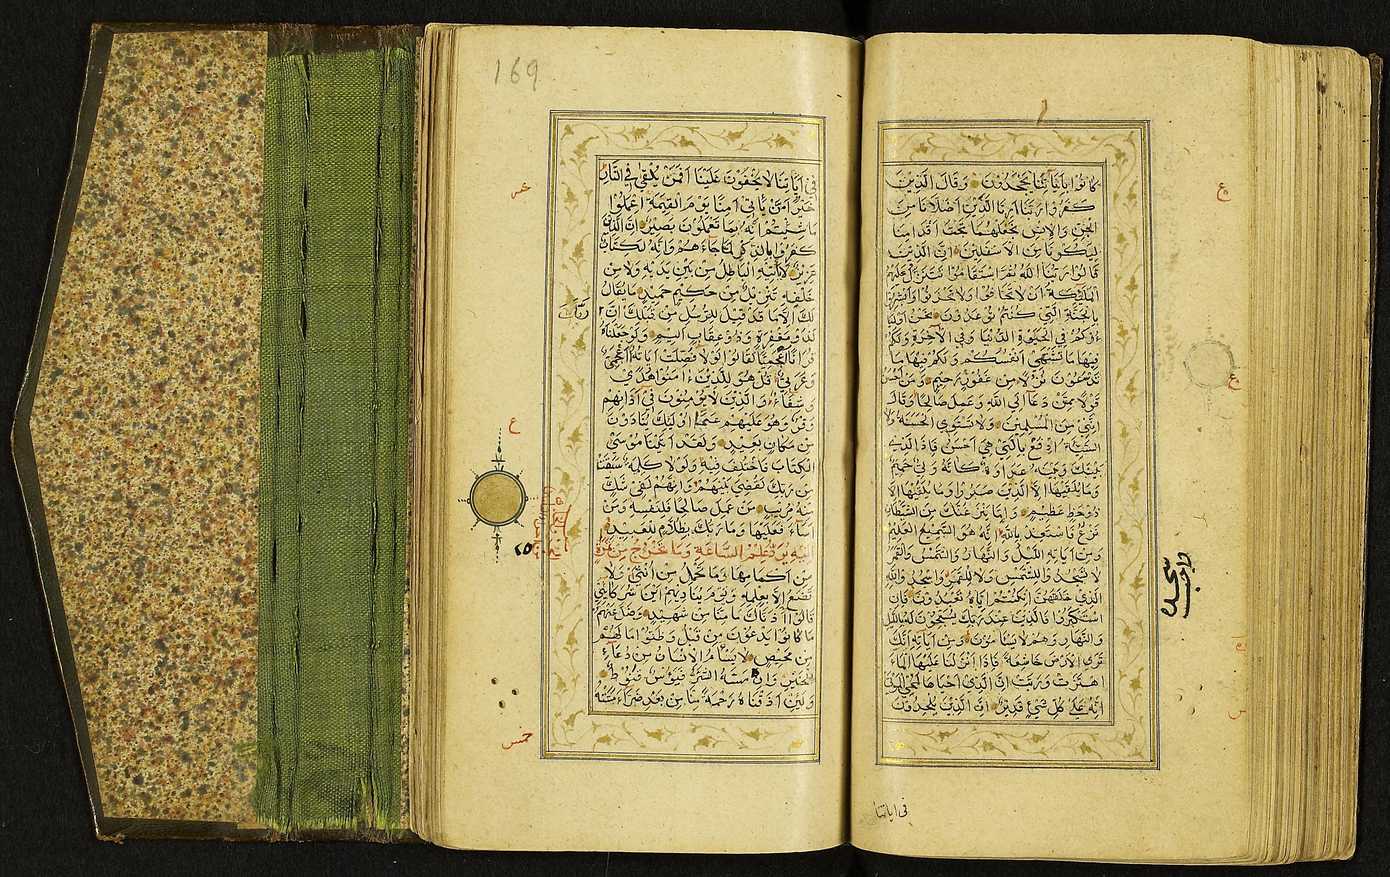 كَانُوا بِاٰيَاتِنَا يَجْحَدُونَ وَقَالَ الَّذِينَ
كَفَرُوا رَبَّنَا اَرِنَا الَّذَيْنِ اَضَلَّانَا مِنَ
الْجِنِّ وَالْاِنْسِ نَجْعَلْهُمَا تَحْتَ اَقْدَامِنَا
لِيَكُونَا مِنَ الْاَسْفَلِينَ اِنَّ الَّذِينَ
قَالُوا رَبُّنَا اللّٰهُ ثُمَّ اسْتَقَامُوا تَتَنَزَّلُ عَلَيْهِمُ
الْمَلٰئِكَةُ اَنْ لَا تَخَافُوا وَلَا تَحْزَنُوا وَاَبْشِرُوا
بِالْجَنَّةِ الَّتِي كُنْتُمْ تُوعَدُونَ نَحْنُ اَوْلِيَا
ؤُكُمْ فِي الْحَيٰوةِ الدُّنْيَا وَفِي الْاٰخِرَةِ وَلَكُمْ
فِيهَا مَا تَشْتَهِي اَنْفُسُكُمْ وَلَكُمْ فِيهَا مَا
تَدَّعُونَ نُزُلًا مِنْ غَفُورٍ رَحِيمٍ وَمَنْ اَحْسَنُ
قَوْلًا مِمَّنْ دَعَا اِلَى اللّٰهِ وَعَمِلَ صَالِحًا وَقَالَ
اِنَّنِي مِنَ الْمُسْلِمِينَ وَلَا تَسْتَوِي الْحَسَنَةُ وَلَا
السَّيِّئَةُ اِدْفَعْ بِالَّتِي هِيَ اَحْسَنُ فَاِذَا الَّذِي
بَيْنَكَ وَبَيْنَهُ عَدَاوَةٌ كَاَنَّهُ وَلِيٌّ حَمِيمٌ
وَمَا يُلَقّٰيهَا اِلَّا الَّذِينَ صَبَرُوا وَمَا يُلَقّٰيهَا اِلَّا
ذُو حَظٍّ عَظِيمٍ وَاِمَّا يَنْزَغَنَّكَ مِنَ الشَّيْطَانِ
نَزْغٌ فَاسْتَعِذْ بِاللّٰهِ اِنَّهُ هُوَ السَّمِيعُ الْعَلِيمُ
وَمِنْ اٰيَاتِهِ اللَّيْلُ وَالنَّهَارُ وَالشَّمْسُ وَالْقَمَرُ
لَا تَسْجُدُوا لِلشَّمْسِ وَلَا لِلْقَمَرِ وَاسْجُدُوا لِلّٰهِ
الَّذِي خَلَقَهُنَّ اِنْ كُنْتُمْ اِيَّاهُ تَعْبُدُونَ فَاِنِ
اسْتَكْبَرُوا فَالَّذِينَ عِنْدَ رَبِّكَ يُسَبِّحُونَ لَهُ بِاللَّيْلِ
وَالنَّهَارِ وَهُمْ لَا يَسْئَمُونَ وَمِنْ اٰيَاتِهِ اَنَّكَ
تَرَى الْاَرْضَ خَاشِعَةً فَاِذَا اَنْزَلْنَا عَلَيْهَا الْمَاءَ
اهْتَزَّتْ وَرَبَتْ اِنَّ الَّذِي اَحْيَاهَا لَمُحْيِ الْمَوْتٰى
اِنَّهُ عَلٰى كُلِّ شَيْءٍ قَدِيرٌ اِنَّ الَّذِينَ يُلْحِدُونَ
ع
ع
سجدة
واجب
فى اياتنا
169
فِي اٰيَاتِنَا لَا يَخْفَوْنَ عَلَيْنَا اَفَمَنْ يُلْقٰى فِي النَّارِ
خَيْرٌ اَمْ مَنْ يَأْتِي اٰمِنًا يَوْمَ الْقِيٰمَةِ اِعْمَلُوا
مَا شِئْتُمْ اِنَّهُ بِمَا تَعْمَلُونَ بَصِيرٌ اِنَّ الَّذِينَ
كَفَرُوا بِالذِّكْرِ لَمَّا جَاءَهُمْ وَاِنَّهُ لَكِتَابٌ
عَزِيزٌ لَا يَأْتِيهِ الْبَاطِلُ مِنْ بَيْنِ يَدَيْهِ وَلَا مِنْ
خَلْفِهِ تَنْزِيلٌ مِنْ حَكِيمٍ حَمِيدٍ مَا يُقَالُ
لَكَ اِلَّا مَا قَدْ قِيلَ لِلرُّسُلِ مِنْ قَبْلِكَ اِنَّ
رَبَّكَ
لَذُو مَغْفِرَةٍ وَذُو عِقَابٍ اَلِيمٍ وَلَوْ جَعَلْنَاهُ
قُرْاٰنًا اَعْجَمِيًّا لَقَالُوا لَوْلَا فُصِّلَتْ اٰيَاتُهُ ءَاَعْجَمِيٌّ
وَعَرَبِيٌّ قُلْ هُوَ لِلَّذِينَ اٰمَنُوا هُدًى
وَشِفَاءٌ وَالَّذِينَ لَا يُؤْمِنُونَ فِي اٰذَانِهِمْ
وَقْرٌ وَهُوَ عَلَيْهِمْ عَمًى اُولٰئِكَ يُنَادَوْنَ
مِنْ مَكَانٍ بَعِيدٍ وَلَقَدْ اٰتَيْنَا مُوسَى
الْكِتَابَ فَاخْتُلِفَ فِيهِ وَلَوْلَا كَلِمَةٌ سَبَقَتْ
مِنْ رَبِّكَ لَقُضِيَ بَيْنَهُمْ وَاِنَّهُمْ لَفِي شَكٍّ
مِنْهُ مُرِيبٍ مَنْ عَمِلَ صَالِحًا فَلِنَفْسِهِ وَمَنْ
اَسَاءَ فَعَلَيْهَا وَمَا رَبُّكَ بِظَلَّامٍ لِلْعَبِيدِ
اِلَيْهِ يُرَدُّ عِلْمُ السَّاعَةِ وَمَا تَخْرُجُ مِنْ ثَمَرَةٍ
مِنْ اَكْمَامِهَا وَمَا تَحْمِلُ مِنْ اُنْثٰى وَلَا
تَضَعُ اِلَّا بِعِلْمِهِ وَيَوْمَ يُنَادِيهِمْ اَيْنَ شُرَكَائِي
قَالُوا اٰذَنَّاكَ مَا مِنَّا مِنْ شَهِيدٍ وَضَلَّ عَنْهُمْ
مَا كَانُوا يَدْعُونَ مِنْ قَبْلُ وَظَنُّوا مَا لَهُمْ
مِنْ مَحِيصٍ لَا يَسْاَمُ الْاِنْسَانُ مِنْ دُعَاءِ
الْخَيْرِ وَاِنْ مَسَّهُ الشَّرُّ فَيَؤُسٌ قَنُوطٌ
وَلَئِنْ اَذَقْنَاهُ رَحْمَةً مِنَّا مِنْ بَعْدِ ضَرَّاءَ مَسَّتْهُ
خمس
ع
٢٥
خمس